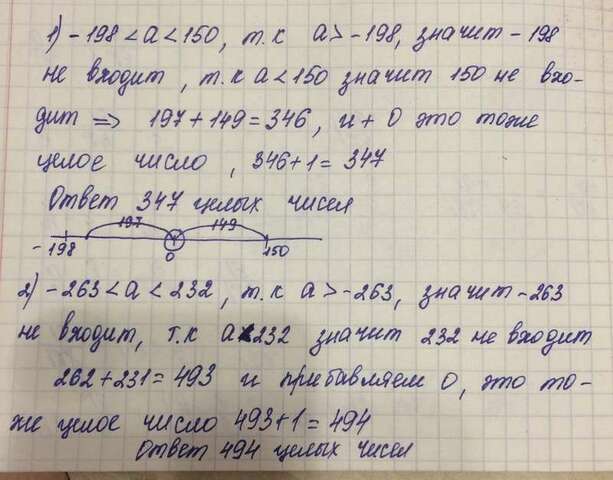 1) -198 < a < 150, т.к a > -198, значит -198
не входит, т.к a < 150 значит 150 не вхо-
дит => 197 + 149 = 346, и + 0 это тоже
целое число, 346 + 1 = 347
Ответ 347 целых чисел
197 149
-198 0 150
2) -263 < a < 232, т.к a > -263, значит -263
не входит, т.к a < 232 значит 232 не входит
262 + 231 = 493 и прибавляем 0, это то-
же целое число 493 + 1 = 494
Ответ 494 целых чисел